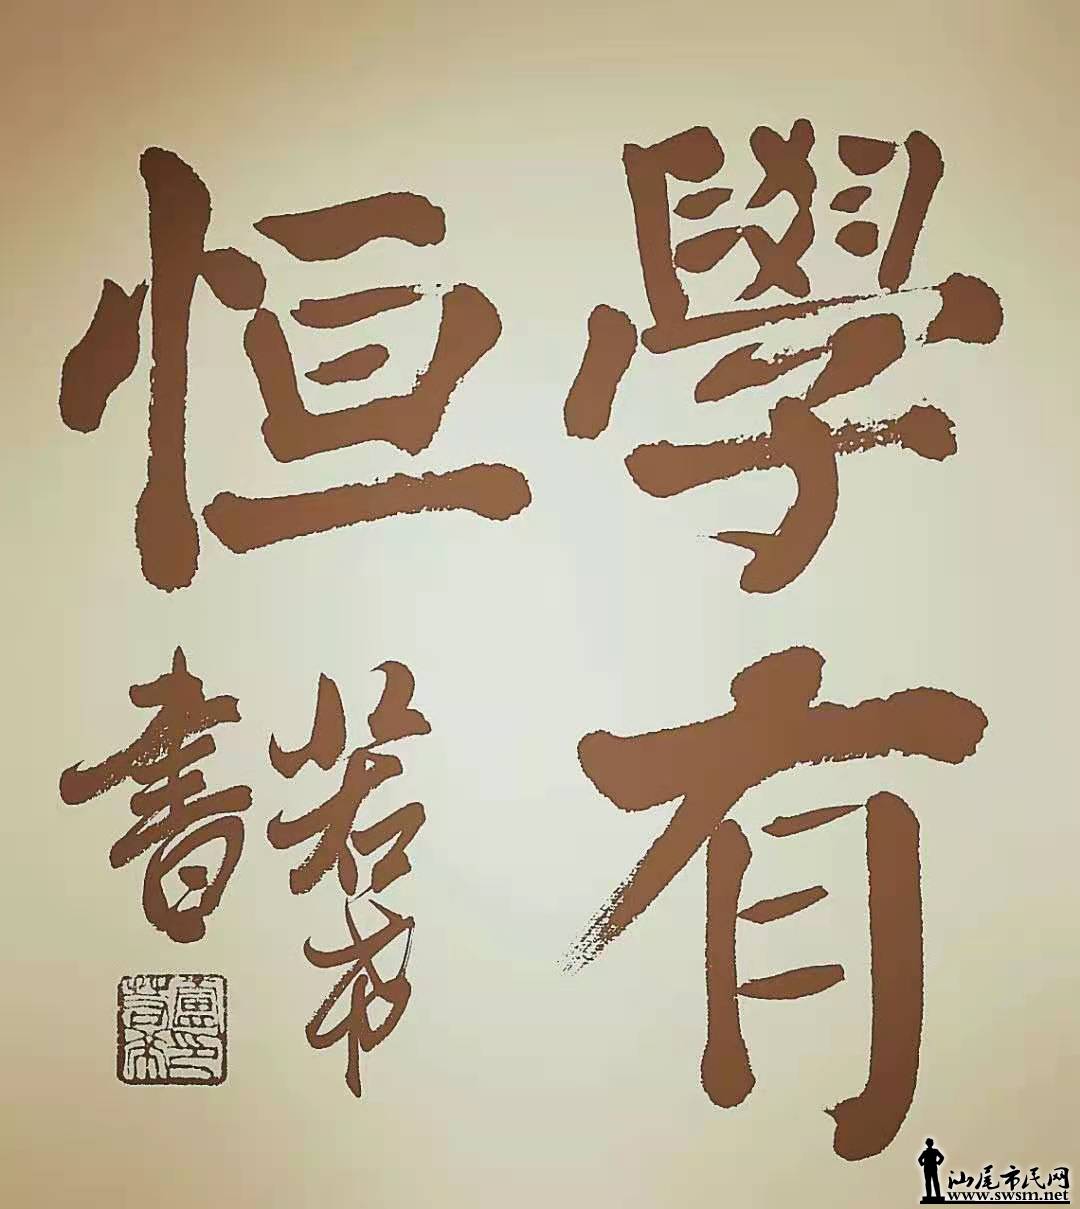 學有
恒
若
書
汕尾市民网
www.swsm.net